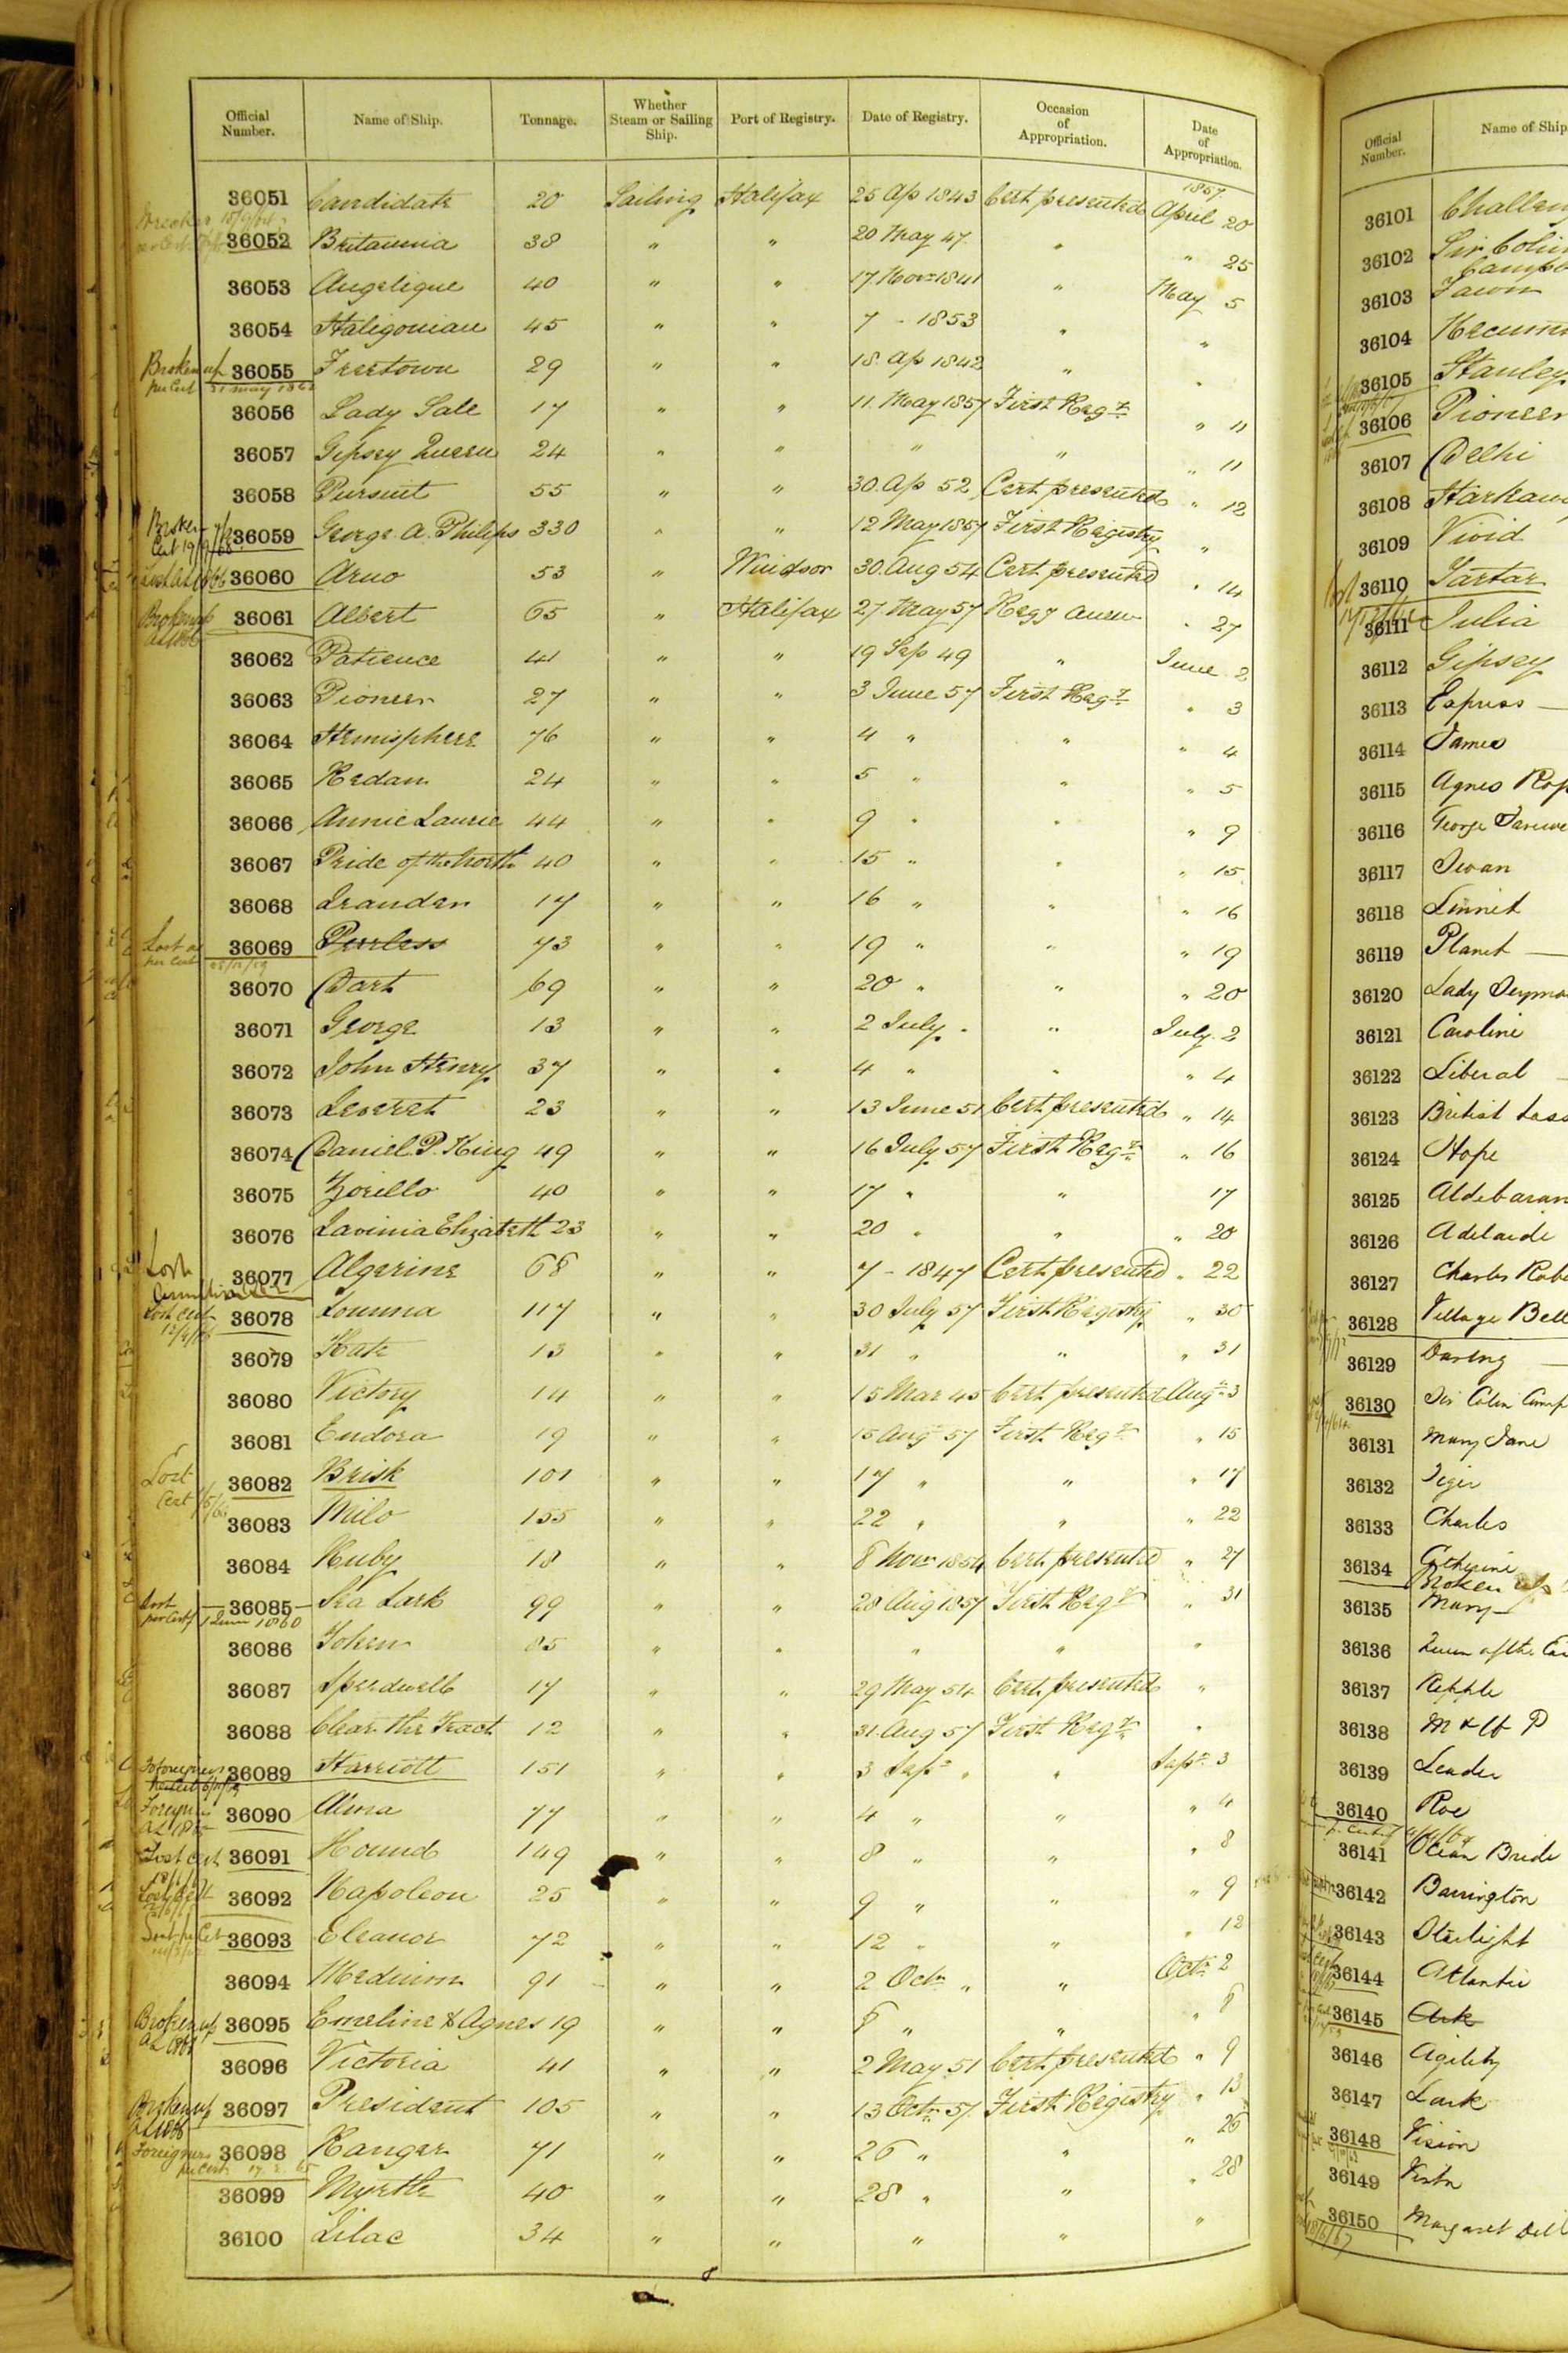 Official Number. Name of Ship. Tonnage. Whether Steam or Sailing Ship. Port of Registry. Date of Registry. Occasion of Appropriation. Date of Appropriation.
1857
36051 Candidate 20 Sailing Halifax 25 Ap 1843 Cert presented April 20
36052 Britannia 38 " " 20 May 47 " " 25
36053 Angelique 40 " " 17 Novr 1841 " May 5
36054 Haligonian 45 " " 7 - 1853 " "
Broken up per Cert 31 May 1862
36055 Freetown 29 " " 18 Ap 1842 " "
36056 Lady Sale 17 " " 11 May 1857 First Regy " 11
36057 Gipsey Queen 24 " " " " " 11
36058 Pursuit 55 " " 30 Ap 52 Cert presented " 12
36059 George A. Philips 330 " " 12 May 1857 First Registry "
36060 Arno 53 " Windsor 30 Aug 54 Cert presented " 14
Broken up
36061 Albert 65 " Halifax 27 May 57 Regy anew " 27
36062 Patience 41 " " 19 Sep 49 " June 2
36063 Pioneer 27 " " 3 June 57 First Regy " 3
36064 Hemisphere 76 " " 4 " " " 4
36065 Redan 24 " " 5 " " " 5
36066 Annie Laurie 44 " " 9 " " " 9
36067 Pride of the North 40 " " 15 " " " 15
36068 Leander 17 " " 16 " " " 16
Lost per Cert
36069 Peerless 73 " " 19 " " " 19
36070 Dart 69 " " 20 " " " 20
36071 George 13 " " 2 July " " July 2
36072 John Henry 37 " " 4 " " " 4
36073 Leveret 23 " " 13 June 51 Cert presented " 14
36074 Daniel P. King 49 " " 16 July 57 First Regy " 16
36075 Zorillo 40 " " 17 " " 17
36076 Lavinia Elizabeth 23 " " 20 " " " 20
Lost
36077 Algerine 68 " " 7 - 1847 Cert presented " 22
Lost Cert
36078 Lounna 117 " " 30 July 57 First Registry " 30
36079 Kate 13 " " 31 " " " 31
36080 Victory 14 " " 15 Mar 45 Cert presented Augt 3
36081 Eudora 19 " " 15 Augt 57 First Regy " 15
Lost Cert
36082 Brisk 101 " " 17 " " " 17
36083 Milo 155 " " 22 " " " 22
36084 Ruby 18 " " 8 Novr 1854 Cert presented " 27
Lost per Cert 1 June 1860
36085 Sea Lark 99 " " 28 Aug 1857 First Regy " 31
36086 Token 85 " " " " "
36087 Speedwell 17 " " 29 May 54 Cert presented "
36088 Clear the Track 12 " " 31 Aug 57 First Regy "
36089 Harriott 151 " " 3 Sept " " Sept 3
36090 Alma 77 " " 4 " " " 4
Lost Cert
36091 Hound 149 " " 8 " " " 8
36092 Napoleon 25 " " 9 " " " 9
36093 Eleanor 72 " " 12 " " " 12
36094 Medium 91 " " 2 Octr " " Octr 2
Broken up
36095 Emeline & Agnes 19 " " 8 " " " 8
36096 Victoria 41 " " 2 May 51 Cert presented " 9
Broken up
36097 President 105 " " 13 Octr 57 First Registry " 13
Foreigners per Cert
36098 Ranger 71 " " 26 " " " 26
36099 Myrtle 40 " " 28 " " " 28
36100 Lilac 34 " " " " "
Official Number. Name of Ship
36101
36102 Sir Colin
36103 Fawn
36104
36105 Stanley
36106 Pioneer
36107 Delhi
36108
36109 Vivid
36110 Tartar
36111 Julia
36112 Gipsey
36113 Express
36114 James
36115 Agnes
36116 George
36117 Swan
36118 Linnet
36119 Planet
36120 Lady
36121 Caroline
36122 Liberal
36123 British Lass
36124 Hope
36125 Aldebaran
36126 Adelaide
36127 Charles
36128 Village Bell
36129 Daring
36130 Sir Colin
36131 Mary Jane
36132 Tiger
36133 Charles
36134 Catherine
Broken up
36135 Mary
36136 Queen of the
36137
36138 M & P
36139 Leader
36140 Roe
36141 Ocean Bride
36142 Barrington
36143 Starlight
36144 Atlantic
36145 Ark
36146 Agility
36147 Lark
36148 Vision
36149 Vesta
36150 Margaret